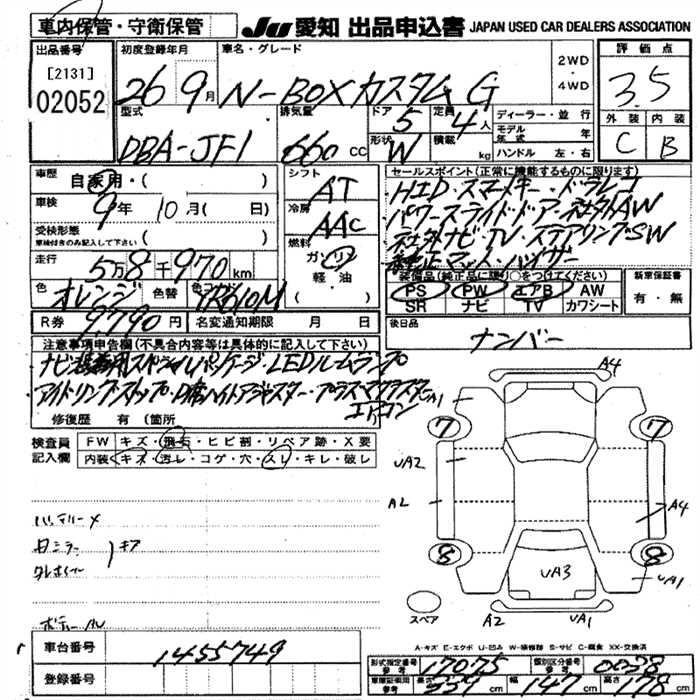 車内保管・守衛保管
JU 愛知 出品申込書 JAPAN USED CAR DEALERS ASSOCIATION
出品番号
[2131]
02052
初度登録年月
26 9月
車名・グレード
N-BOXカスタム G
2WD
・
4WD
評価点
3.5
外装 内装
C B
型式
DBA-JF1
排気量
660 cc
ドア 定員
5 4人
形状 積載
W kg
ディーラー・並行
モデル年式 年
ハンドル 左・右
車歴
自家用・( )
車検
9年 10月( 日)
受検形態
車検付きのみ記入して下さい ( )
走行
5万8千970km
色 オレンジ 色替 色コード YR610M
R券 9790円 名変通知期限 月 日
シフト
AT
冷房
AAC
燃料
ガソリン
軽・油
セールスポイント(正常に機能するものに限ります)
HID・スマートキー・ドラレコ
パワースライドドアー・社外AW
社外ナビ・TV・ステアリングSW
純正マット・バイザー
装備品(純正品に限り○をつけてください)
PS PW エアB AW
SR ナビ TV カワシート
新車保証書
有・無
後日品
ナンバー
注意事項申告欄(不具合内容等は具体的に記入して下さい)
ナビ装着用スペシャルパッケージ・LEDルームランプ
アイドリングストップ・D席ハイトアジャスター・プラズマクラスター
エアコン
修復歴 有(箇所
検査員
記入欄
FW キズ・飛石・ヒビ割・リペア跡・X要
内装 キズ・汚レ・コゲ・穴・スレ・キレ・破レ
バッテリーメ
キズ
A4
UA1
7
7
UA2
A2
A4
8
8
UA3
UA1
スペア
A2
UA1
A-キズ E-エクボ U-凹み W-補修跡 S-サビ C-腐食 XX-交換済
車台番号
1455749
登録番号
形式指定番号
参考
17075
類別区分番号
参考
0038
車庫証明用
参考
長さ 339cm 幅 147cm 高さ 178cm